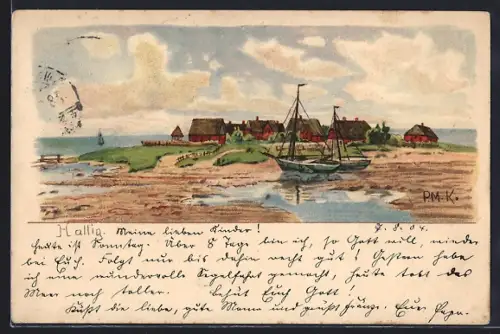 P.M.K.
Hallig. Meine lieben Kinder! 7.8.04.
Heute ist Sonntag. Über 8 Tage bin ich, so Gott will, wieder
bei Euch. Folgt nur bis dahin recht gut! Gestern habe
ich eine wundervolle Segelfahrt gemacht, heute tost das
Meer noch toller. Behüt Euch Gott!
Küßt die liebe, gute Mama und grüßt Franze. Eur. Papa.